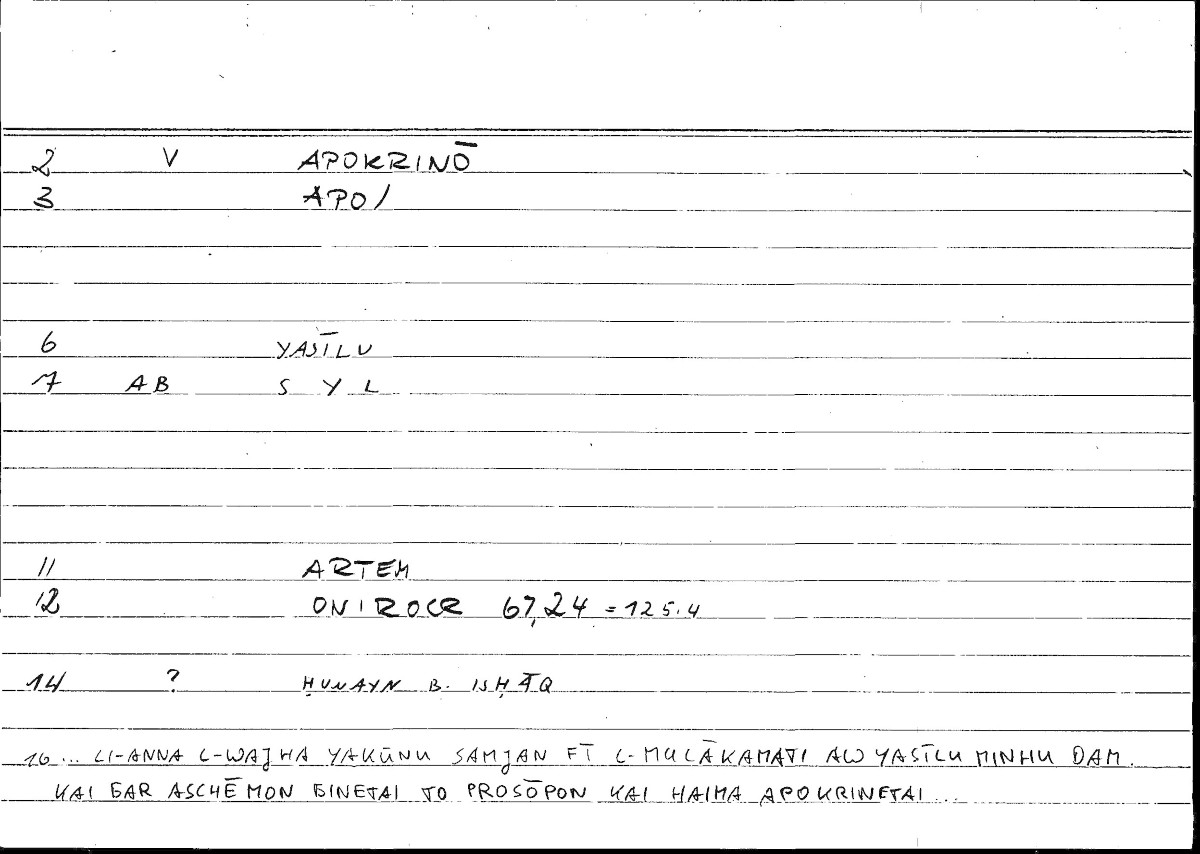 2 V APOKRINŌ
3 APO/
6 YASĪLU
7 AB S Y L
11 ARTEM
12 ONIROCR 67,24 = 125.4
14 ? ḤUNAYN B. ISḤĀQ
16... LI-ANNA L-WAJHA YAKŪNU SAMJAN FĪ L-MULĀKAMATI AW YASĪLU MINHU DAM.
KAI GAR ASCHĒMON GINETAI TO PROSŌPON KAI HAIMA APOKRINETAI...